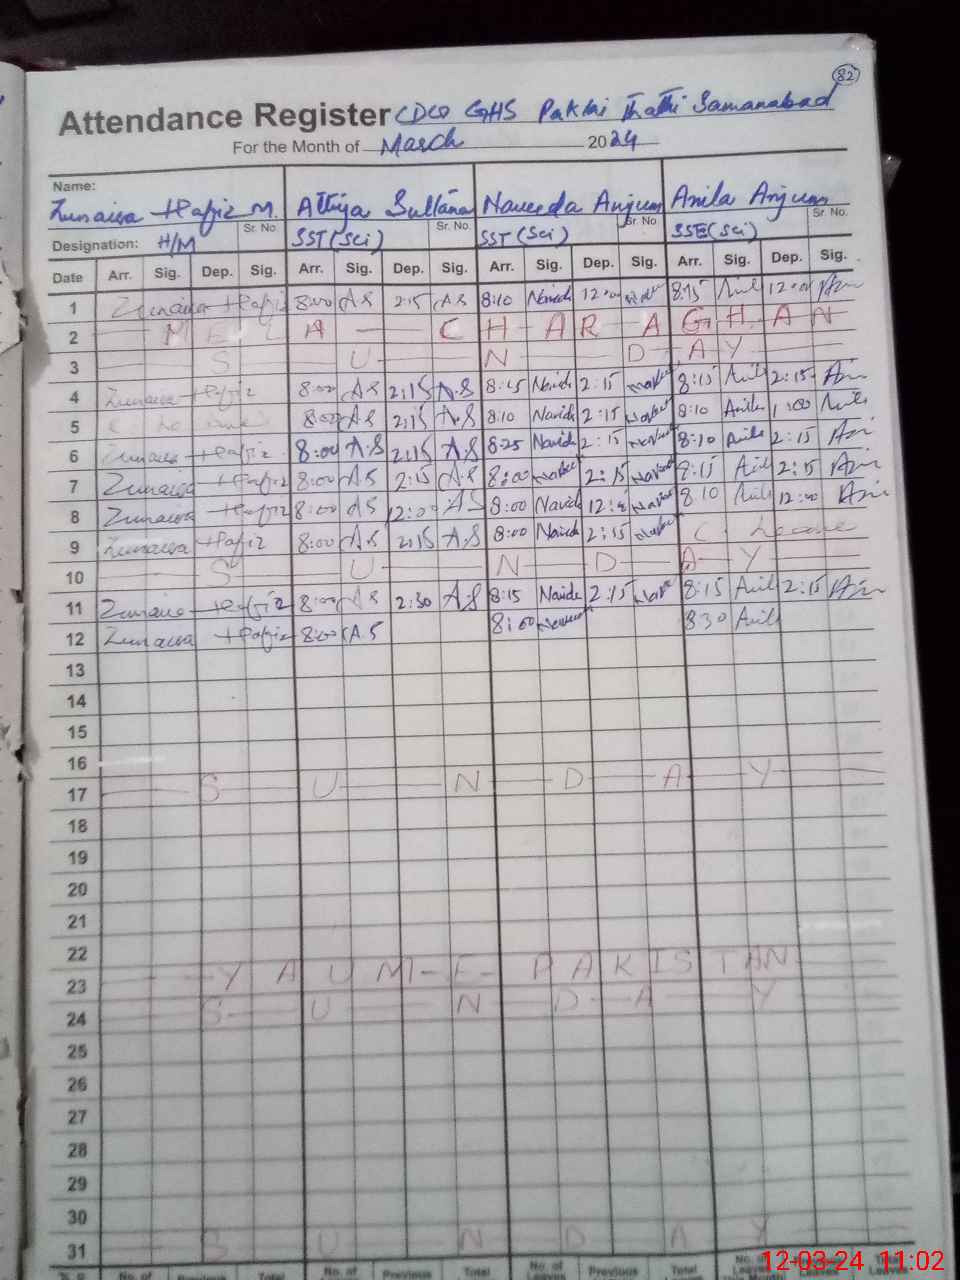 82
Attendance Register CDCO GHS Pakki Thathi Samanabad
For the Month of March 2024
Name:
Zunaira Hafiz M. Attiya Sultana Naveeda Anjum Anila Anjum
Sr. No. Sr. No. Sr. No. Sr. No.
Designation: H/M SST (Sci) SST (Sci) SSE (Sci)
Date Arr. Sig. Dep. Sig. Arr. Sig. Dep. Sig. Arr. Sig. Dep. Sig. Arr. Sig. Dep. Sig.
1 Zunaira Hafiz 8:00 A.S 2:15 A.S 8:10 Navida 12:00 8:15 Anila 12:00
2 MELA CHARAGHAN
3 SUNDAY
4 Zunaira Hafiz 8:00 A.S 2:15 A.S 8:15 Navida 2:15 8:15 Anila 2:15
5 8:00 A.S 2:15 A.S 8:10 Navida 2:15 8:10 Anila 1:00
6 Zunaira Hafiz 8:00 A.S 2:15 A.S 8:25 Navida 2:15 8:10 Anila 2:15
7 Zunaira Hafiz 8:00 A.S 2:15 A.S 8:00 2:15 8:15 Anila 2:15
8 Zunaira Hafiz 8:00 A.S 12:00 A.S 8:00 Navida 8:10 Anila 12:00
9 Zunaira Hafiz 8:00 A.S 2:15 A.S 8:00 Navida 2:15 C Leave
10 SUNDAY
11 Zunaira Hafiz 8:00 A.S 2:30 A.S 8:15 Navida 2:15 8:15 Anila 2:15
12 Zunaira Hafiz 8:00 A.S 8:00 8:30 Anila
13
14
15
16
17 SUNDAY
18
19
20
21
22
23 YAUM-E-PAKISTAN
24 SUNDAY
25
26
27
28
29
30
31 SUNDAY
No. of Previous Total No. of Previous Total No. of Leaves Previous Total No. of Leaves
12-03-24 11:02